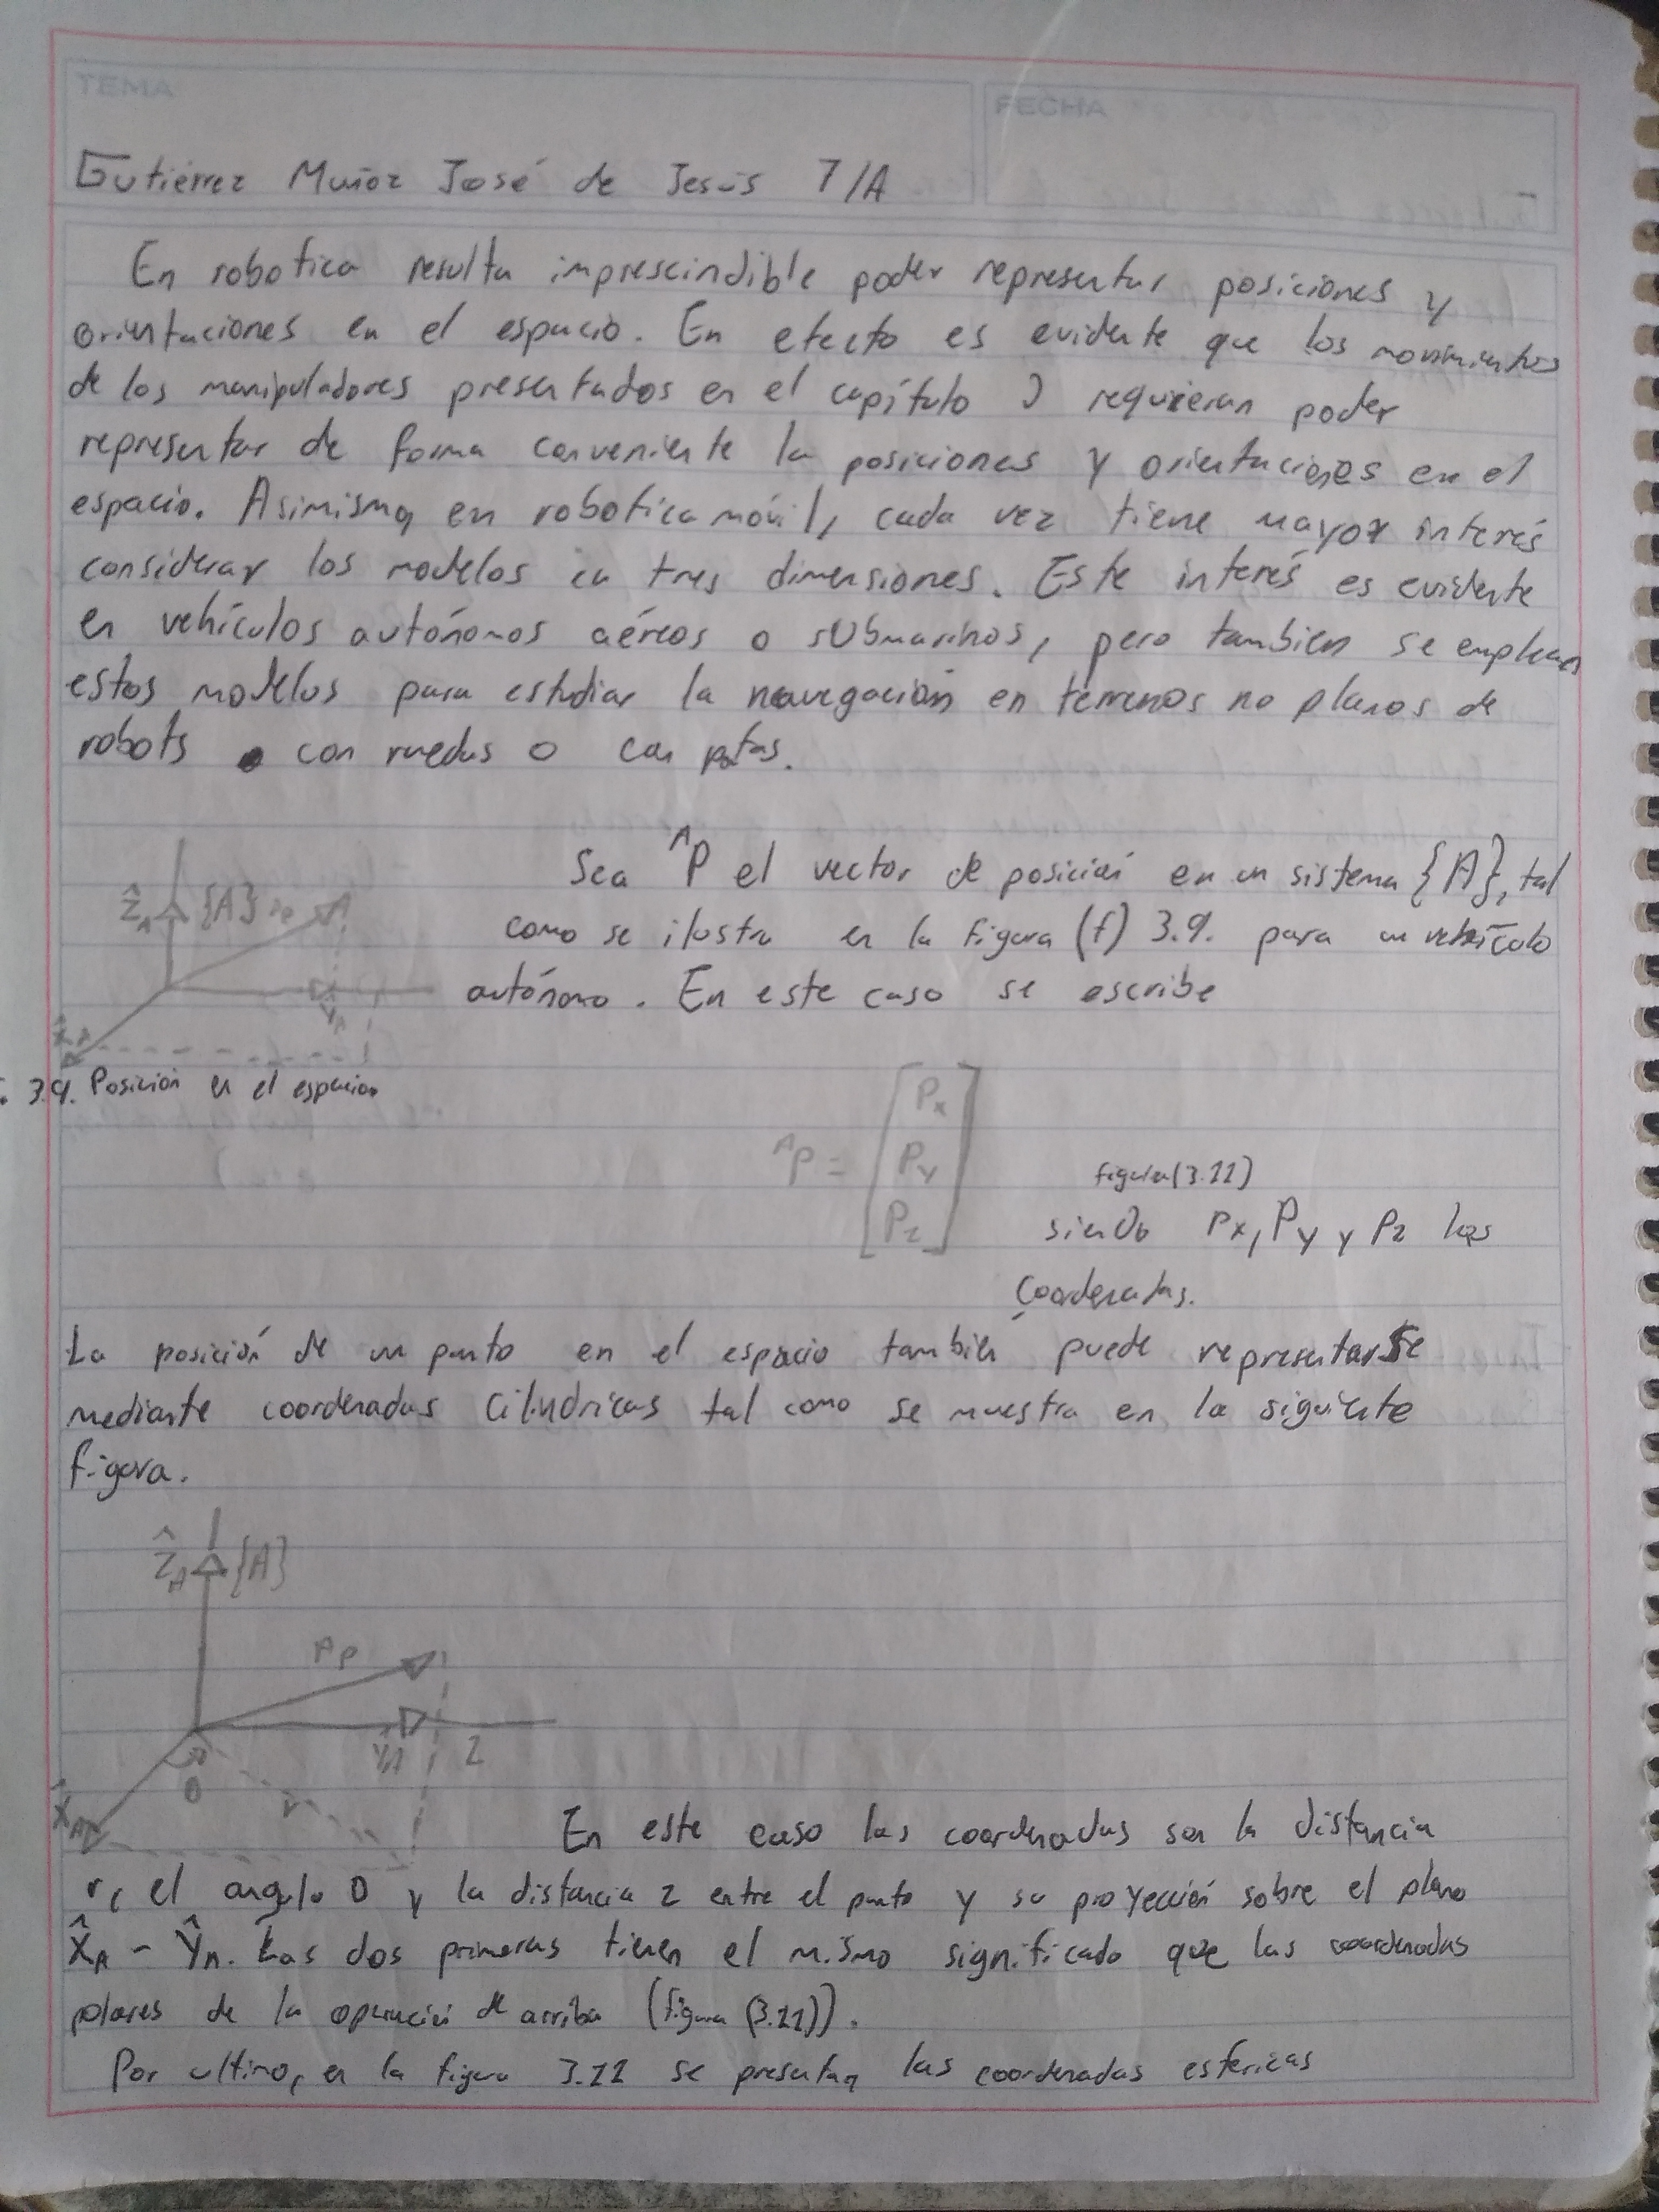 TEMA
FECHA
Gutiérrez Muñoz José de Jesús 7/A
En robotica resulta imprescindible poder representar posiciones y
orientaciones en el espacio. En efecto es evidente que los movimientos
de los manipuladores presentados en el capítulo requieran poder
representar de forma conveniente la posiciones y orientaciones en el
espacio. Asimismo, en robotica móvil, cada vez tiene mayor interés
considerar los modelos en tres dimensiones. Este interés es evidente
en vehículos autónomos aéreos o submarinos, pero tambien se emplean
estos modelos para estudiar la navegación en terrenos no planos de
robots con ruedas o con patas.
Ẑ_A {A}
Sea ^AP el vector de posición en un sistema {A}, tal
como se ilustra en la figura (f) 3.9. para un vehículo
autónomo. En este caso se escribe
X̂_A
Ŷ_A
3.9. Posición en el espacio
^AP = [P_x P_y P_z]
figura (3.11)
siendo Px, Py y Pz las
Coordenadas.
La posición de un punto en el espacio también puede representarse
mediante coordenadas cilindricas tal como se muestra en la siguiente
figura.
Ẑ_A {A}
^AP
Ŷ_A Z
θ
r
X̂_A
En este caso las coordenadas son la distancia
r, el angulo θ y la distancia z entre el punto y su proyección sobre el plano
X̂_A - Ŷ_A. Las dos primeras tienen el mismo significado que las coordenadas
polares de la operación de arriba (figura (3.11)).
Por ultimo, en la figura 3.11 se presentan las coordenadas esfericas